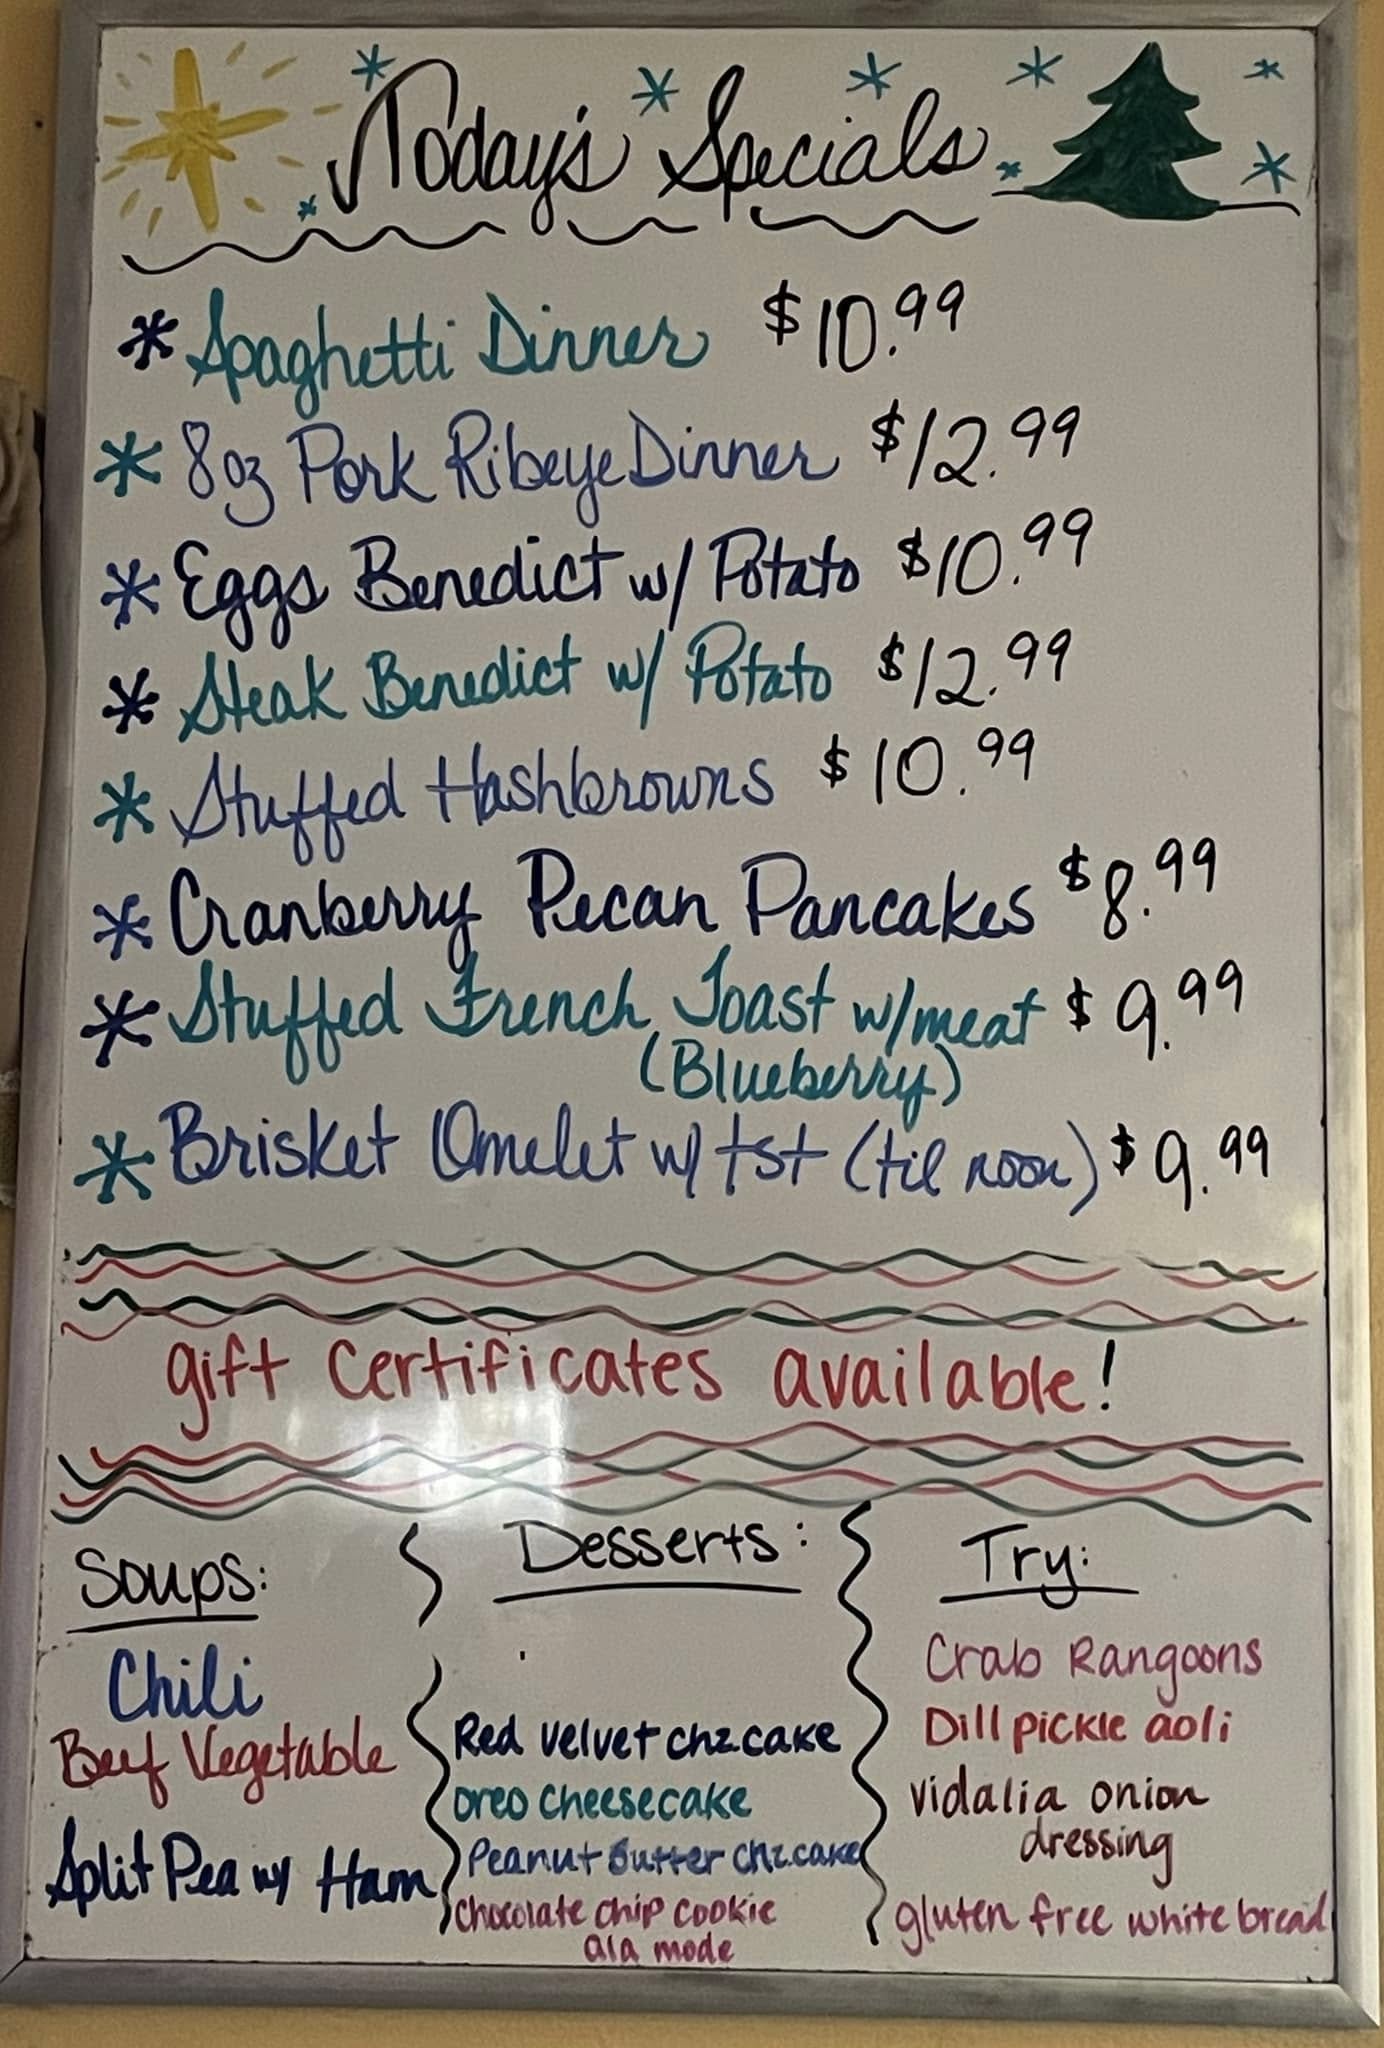 Today's Specials
* Spaghetti Dinner $10.99
* 8oz Pork Ribeye Dinner $12.99
* Eggs Benedict w/ Potato $10.99
* Steak Benedict w/ Potato $12.99
* Stuffed Hashbrowns $10.99
* Cranberry Pecan Pancakes $8.99
* Stuffed French Toast w/meat $9.99
(Blueberry)
* Brisket Omelet w/ tst (til noon) $9.99
gift certificates available!
Soups:
Chili
Beef Vegetable
Split Pea w/ Ham
Desserts:
Red velvet chz.cake
oreo cheesecake
Peanut Butter chz.cake
chocolate chip cookie
ala mode
Try:
Crab Rangoons
Dill pickle aoli
vidalia onion
dressing
gluten free white bread